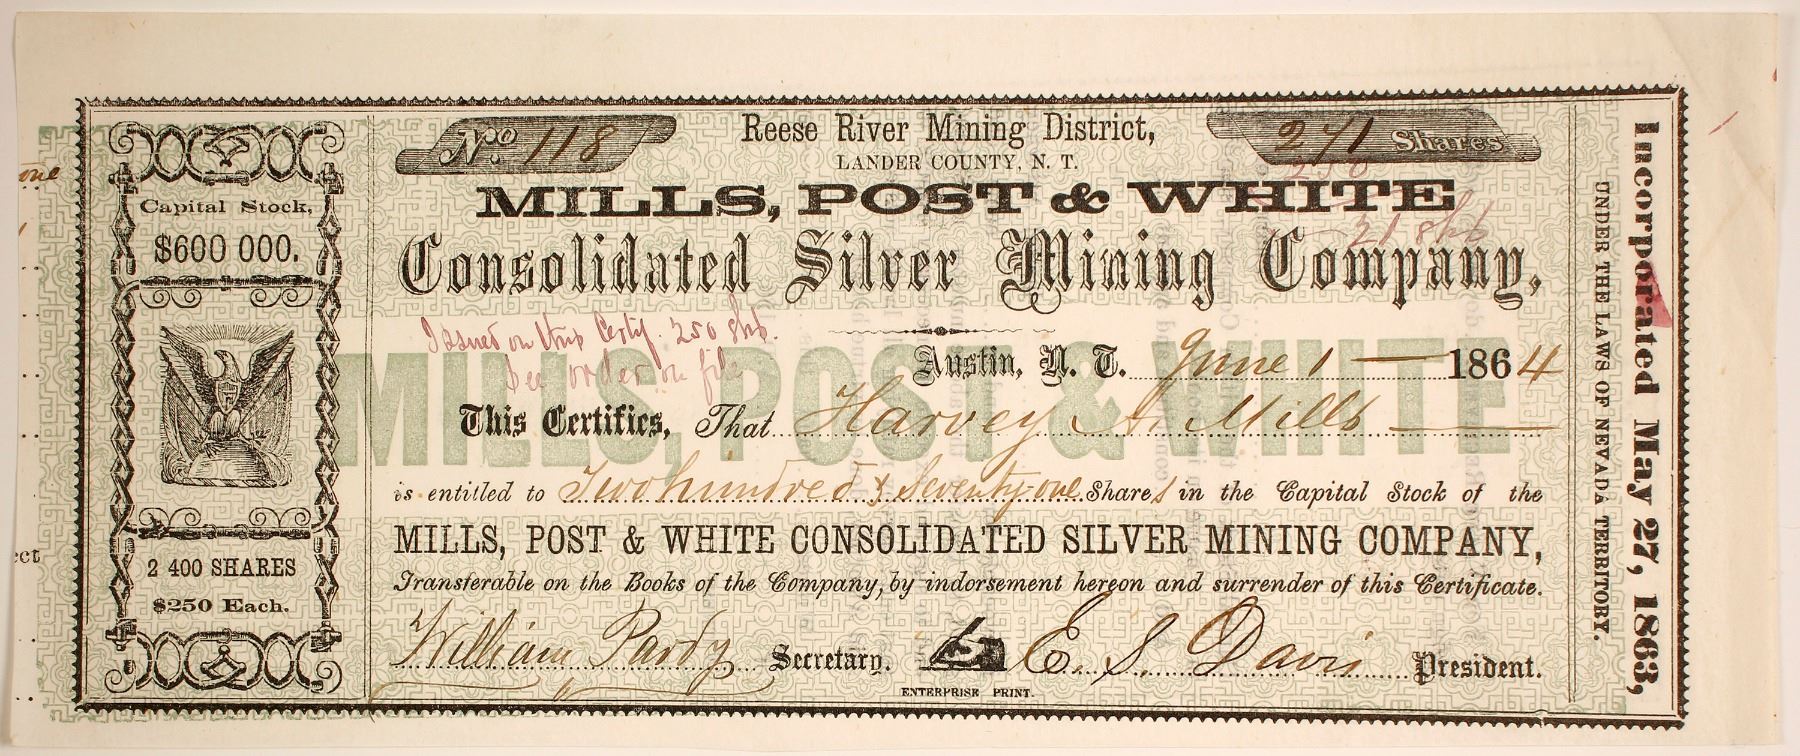 one
Capital Stock,
$600 000.
2 400 SHARES
$250 Each.
No. 118
Reese River Mining District,
271 Shares
250
21 shs
LANDER COUNTY, N. T.
MILLS, POST & WHITE
Consolidated Silver Mining Company,
Issued on this Certif. 250 shs.
See order on file
Austin, N. T. June 1 1864
MILLS, POST & WHITE
This Certifies, That Harvey A. Mills
is entitled to Two hundred & Seventy-one Shares in the Capital Stock of the
MILLS, POST & WHITE CONSOLIDATED SILVER MINING COMPANY,
Transferable on the Books of the Company, by indorsement hereon and surrender of this Certificate.
William Pardy Secretary. E. S. Davis President.
ENTERPRISE PRINT.
UNDER THE LAWS OF NEVADA TERRITORY.
Incorporated May 27, 1863,